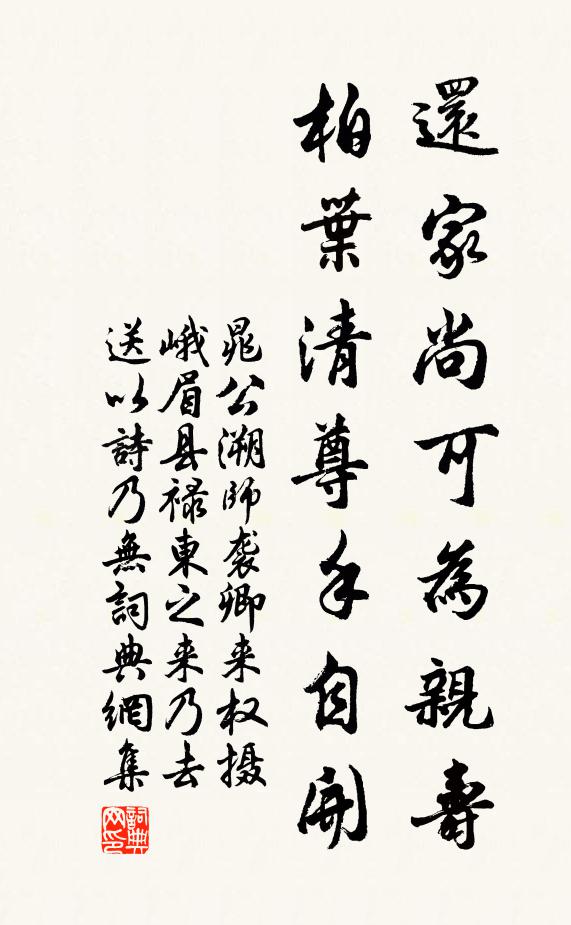 還家尚可為親壽
柏葉清尊手自開
晁公溯師袭卿来权摄
峨眉县禄東之来乃去
送以詩乃無詞典網集
詞典
网印